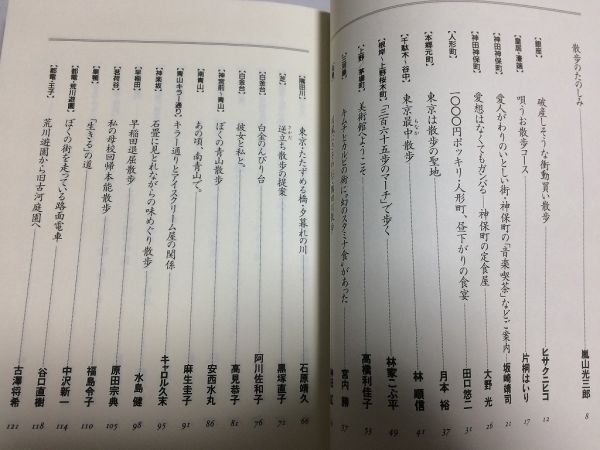 散歩のたのしみ 嵐山光三郎 8
【銀座】 破産しそうな衝動買い散歩 ヒサクニヒコ 12
【皇居・濠端】 唄うお散歩コース 片桐はいり 17
【神田神保町】 愛人がわりのいとしい街・神保町の「音楽喫茶」などご案内 坂崎靖司 21
【神田神保町】 愛想はなくてもガンバる――神保町の定食屋 大野 光 26
【人形町】 一〇〇〇円ポッキリ・人形町、昼下がりの食宴 田口悠二 31
【本郷元町】 東京は散歩の聖地 月本 裕 37
【千駄木・谷中】 東京長屋中散歩 林 順信 41
【根岸〜上野桜木町】 「三百六十五歩のマーチ」で歩く 林家こぶ平 49
【上野・茅場町】 美術館へようこそ 高橋利佳子 53
キムチとカルビの街に"幻のスタミナ食"があった 宮内 勝 57
【隅田川】 東京・たたずめる橋・夕暮れの川 石原靖久 66
【芝】 逆立ち散歩の提案 黒塚直子 72
【白金台】 白金のんびり台 阿川佐和子 76
【白金台】 彼女と私と。 高見恭子 81
【神宮前〜青山】 ぼくの青山散歩 安西水丸 86
【南青山】 あの頃、南青山で。 麻生圭子 91
【青山・キラー通り】 キラー通りとアイスクリーム屋の関係 キャロル久末 95
【神楽坂】 石畳に見とれながらの味めぐり散歩 水島 健 98
【早稲田】 早稲田退屈散歩 原田宗典 105
【茗荷谷】 私の母校回帰本能散歩 福島令子 110
【巣鴨】 「生きる」の道 中沢新一 114
【都電・荒川遊園】 ぼくの街を走っている路面電車 谷口直樹 118
【都電・王子】 荒川遊園から旧古河庭園へ 古澤将希 121